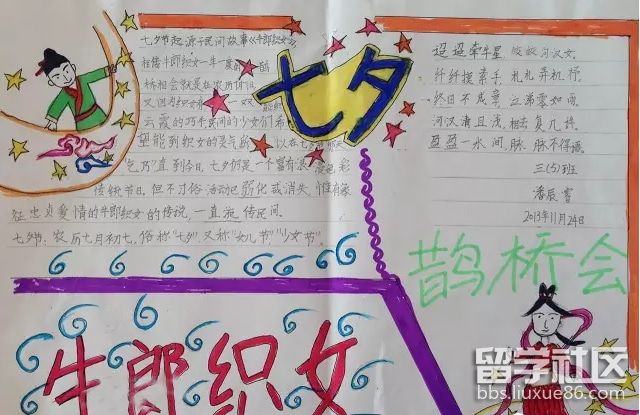 七夕节起源于民间故事《牛郎织女》
相传牛郎织女一年一度
桥相会就是在农历
云霞的巧手民间的少女们希
望能到织女的灵气所以在七
"乞巧"直到今日,七夕仍是一个富有浪漫色彩
传统节日,但不少俗活动已弱化或消失,惟有象
征忠贞爱情的牛郎织女的传说,一直流传民间.
七夕节,农历七月初七,俗称"七夕",又称"女儿节","少女节".
七夕
迢迢牵牛星,皎皎河汉女.
纤纤擢素手,札札弄机杼
终日不成章,泣涕零如雨.
河汉清且浅,相去复几许.
盈盈一水间,脉脉不得语.
三(5)班
潘辰睿
2013年11月24日
鹊桥会
牛郎织女
留学社区
bbs.liuxue86.com